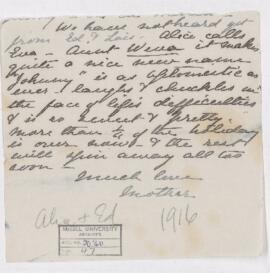 We have not heard yet
from Ed & Lois. Alice calls
Eva - Aunt Weva it makes
quite a nice new name
"Johnny" is as optimistic as
ever - laughs & chuckles in
the face of life's difficulties
& is so sweet & pretty.
more than ½ of the holiday
is over now & the rest
will spin away all too
soon -
Much love
Mother
Alice + Ed
1916
McGILL UNIVERSITY
ARCHIVES